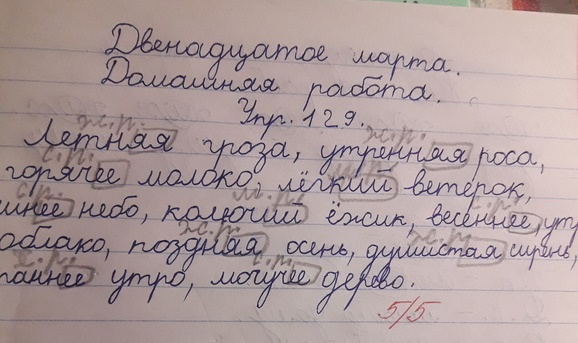 Двенадцатое марта.
Домашняя работа.
Упр. 129.
ж.р. ж.р.
Летняя гроза, утренняя роса,
с.р. м.р.
горячее молоко, лёгкий ветерок,
с.р. м.р.
небо, колючий ёжик, весеннее, утр
ж.р. ж.р.
облако, поздняя осень, душистая сирень,
с.р. с.р.
раннее утро, могучее дерево.
5/5